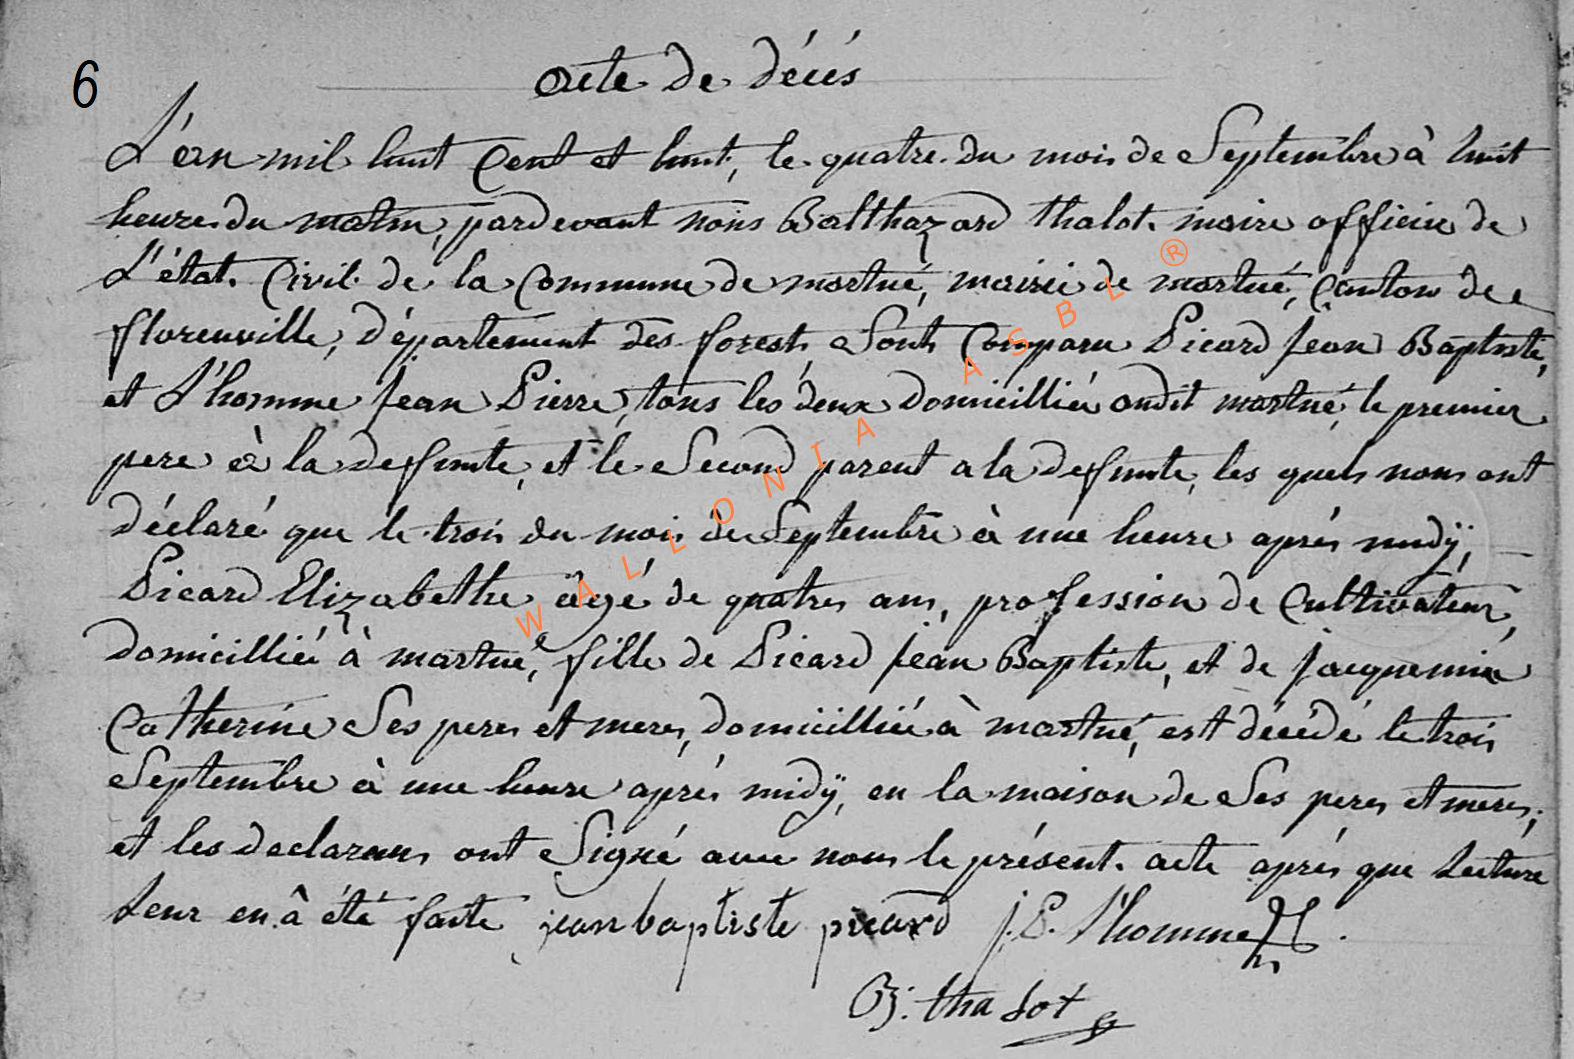 6
acte de décés
L'an mil huit Cent et huit, le quatre du mois de Septembre à huit
heures du matin, pardevant nous Balthazard thalot. maire officier de
L'état. Civil. de la Commune de martué, mairie de martué, Canton de
florenville, Département des forests Sonts Comparu Picard Jean Baptiste,
et L'homme Jean Pierre, tous les deux Domicilliés audit martué, le premier
pere à la deffunte, et le Second parent a la deffunte, les quels nous ont
déclaré que le trois du mois de Septembre à une heure aprés midÿ,
Picard Elizabethe âgé de quatres ans, proffession de Cultivateur,
domicilliée à martué, fille de Picard Jean Baptiste, et de Jacquemin
Catherine Ses peres et meres, domicilliée à martué, est décédé le trois
Septembre à une heure aprés midÿ, en la maison de Ses peres et meres,
et les declarans ont Signé avec nous le présent. acte aprés que Lecture
Leur en à été faite, jean baptiste picard J. P. L'homme
B: thalot
WALLONIA ASBL ®